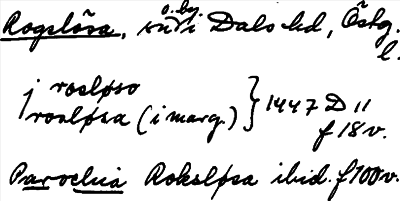 Rogslösa, sn o. by. i Dals hd, Östg. l.
j rosløso
rosløsa (i marg.) } 1447 D 11 f 18 v.
Parochia Roksløsa ibid. f 100 v.